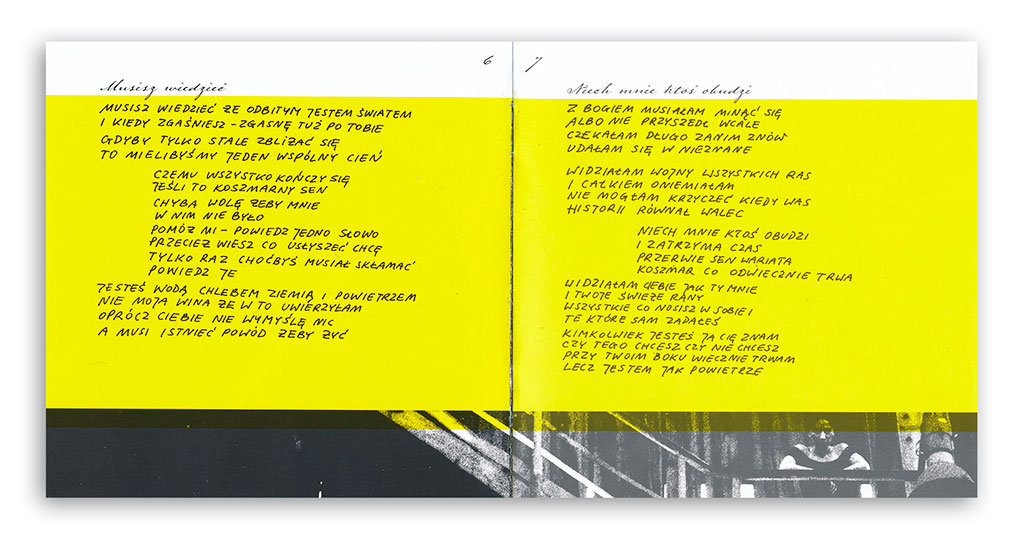 6
Musisz wiedzieć
MUSISZ WIEDZIEĆ ŻE ODBITYM JESTEM ŚWIATEM
I KIEDY ZGAŚNIESZ - ZGASNĘ TUŻ PO TOBIE
GDYBY TYLKO STALE ZBLIŻAĆ SIĘ
TO MIELIBYŚMY JEDEN WSPÓLNY CIEŃ
CZEMU WSZYSTKO KOŃCZY SIĘ
JEŚLI TO KOSZMARNY SEN
CHYBA WOLĘ ŻEBY MNIE
W NIM NIE BYŁO
POMÓŻ MI - POWIEDZ JEDNO SŁOWO
PRZECIEŻ WIESZ CO USŁYSZEĆ CHCĘ
TYLKO RAZ CHOĆBYŚ MUSIAŁ SKŁAMAĆ
POWIEDZ JE
JESTEŚ WODĄ CHLEBEM ZIEMIĄ I POWIETRZEM
NIE MOJA WINA ŻE W TO UWIERZYŁAM
OPRÓCZ CIEBIE NIE WYMYŚLĘ NIC
A MUSI ISTNIEĆ POWÓD ŻEBY ŻYĆ
7
Niech mnie ktoś obudzi
Z BOGIEM MUSIAŁAM MINĄĆ SIĘ
ALBO NIE PRZYSZEDŁ WCALE
CZEKAŁAM DŁUGO ZANIM ZNÓW
UDAŁAM SIĘ W NIEZNANE
WIDZIAŁAM WOJNY WSZYSTKICH RAS
I CAŁKIEM ONIEMIAŁAM
NIE MOGŁAM KRZYCZEĆ KIEDY WAS
HISTORII RÓWNAŁ WALEC
NIECH MNIE KTOŚ OBUDZI
I ZATRZYMA CZAS
PRZERWIE SEN WARIATA
KOSZMAR CO ODWIECZNIE TRWA
WIDZIAŁAM CIEBIE JAK TY MNIE
I TWOJE ŚWIEŻE RANY
WSZYSTKIE CO NOSISZ W SOBIE I
TE KTÓRE SAM ZADAŁEŚ
KIMKOLWIEK JESTEŚ JA CIĘ ZNAM
CZY TEGO CHCESZ CZY NIE CHCESZ
PRZY TWOIM BOKU WIECZNIE TRWAM
LECZ JESTEM JAK POWIETRZE